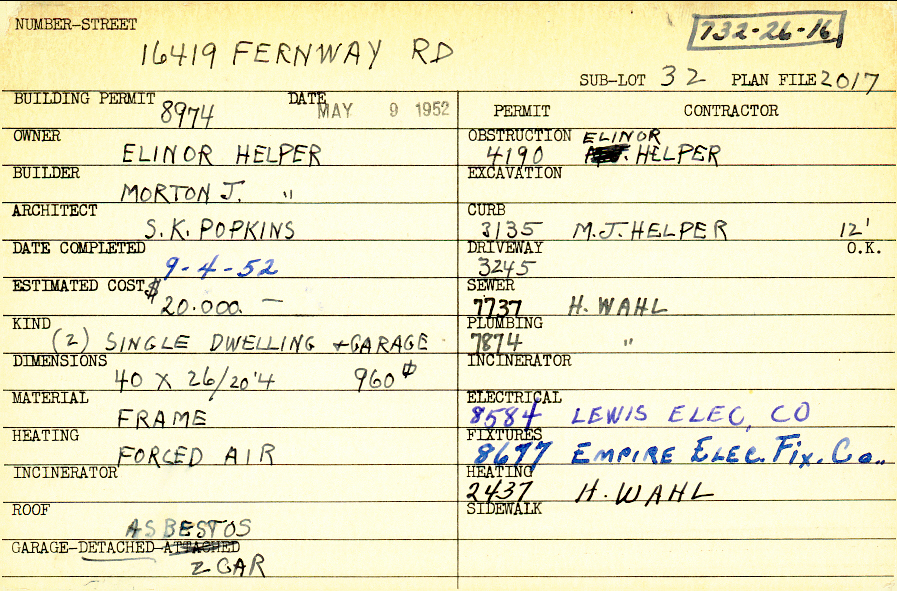 NUMBER-STREET
732-26-16
16419 FERNWAY RD
SUB-LOT 32 PLAN FILE 2017
BUILDING PERMIT 8974 DATE MAY 9 1952
OWNER ELINOR HELPER
BUILDER MORTON J. "
ARCHITECT S.K. POPKINS
DATE COMPLETED 9-4-52
ESTIMATED COST $ 20.000. —
KIND (2) SINGLE DWELLING + GARAGE
DIMENSIONS 40 X 26/20'4 960
MATERIAL FRAME
HEATING FORCED AIR
INCINERATOR
ROOF ASBESTOS
GARAGE-DETACHED-ATTACHED 2 CAR
PERMIT CONTRACTOR
OBSTRUCTION ELINOR
4190 HELPER
EXCAVATION
CURB
3135 M.J. HELPER 12'
DRIVEWAY O.K.
3245
SEWER
7737 H. WAHL
PLUMBING
7874 "
INCINERATOR
ELECTRICAL
8584 LEWIS ELEC, CO
FIXTURES
8677 EMPIRE ELEC. FIX. CO..
HEATING
2437 H. WAHL
SIDEWALK